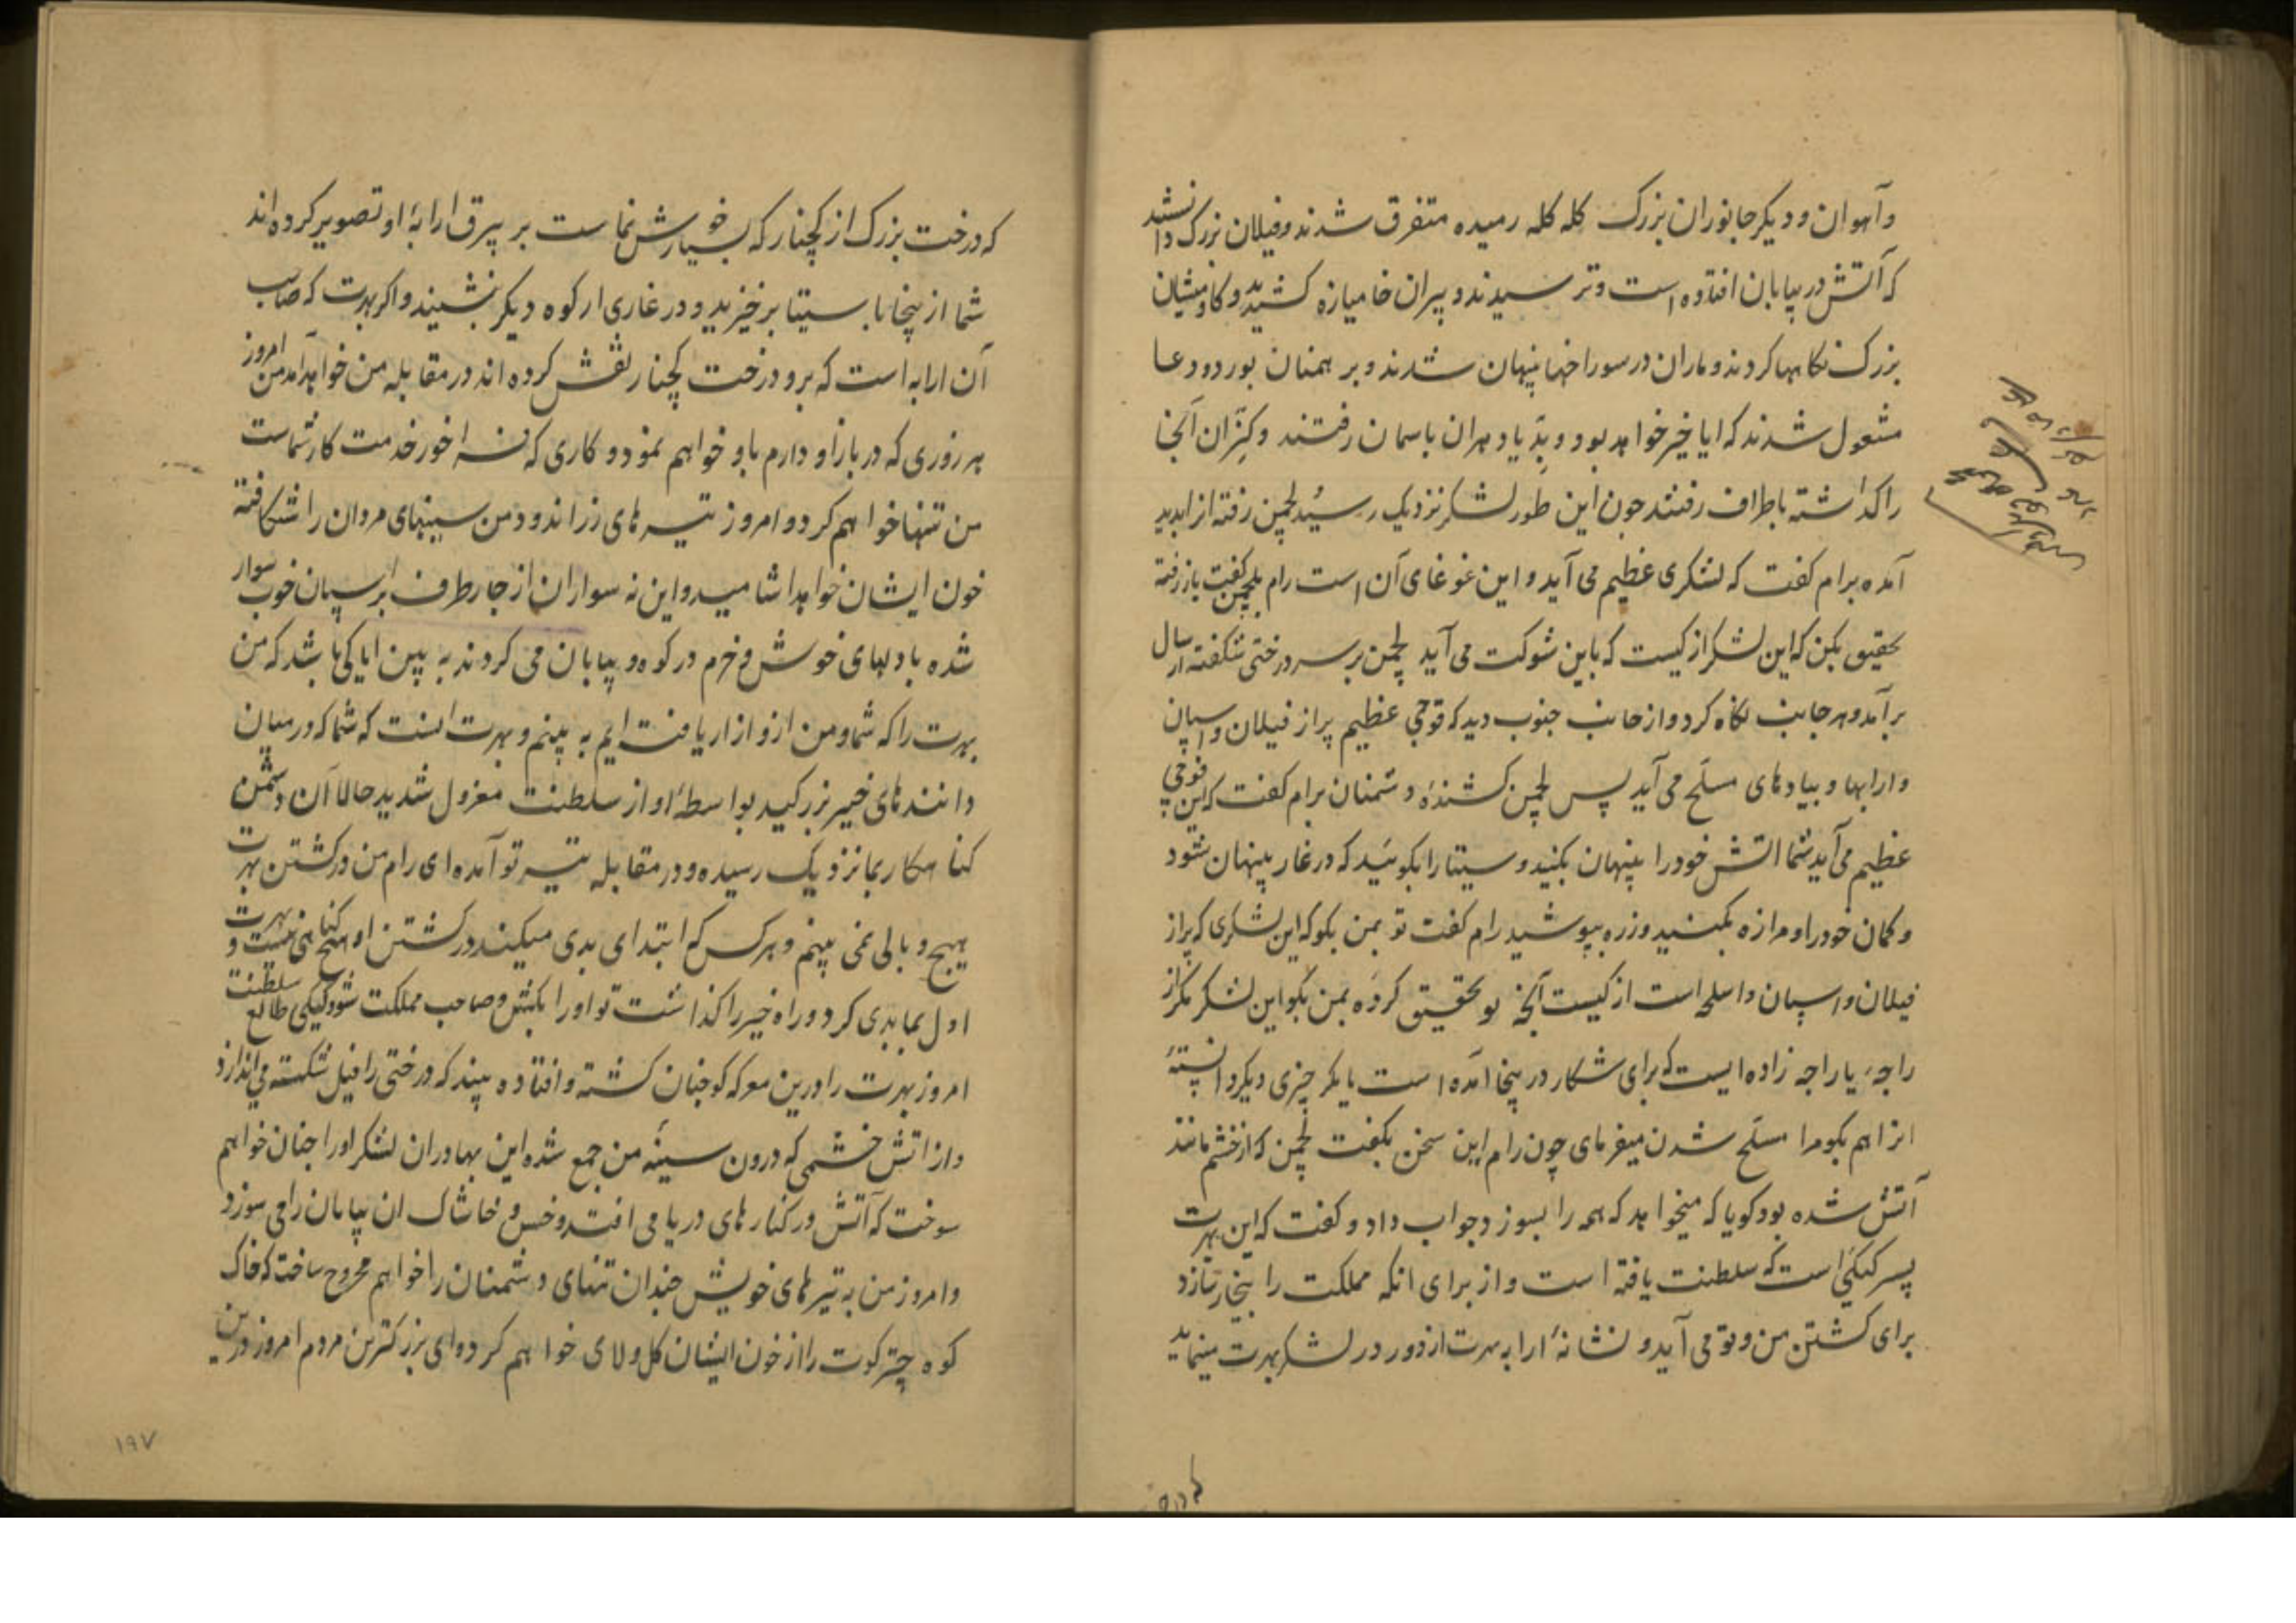 و آهوان و دیکر جانوران بزرک کله کله رمیده متفرق شدند و فیلان بزرک دانستند
که آتش در بیابان افتاده است و ترسیدند و پیران خامیازه کشیدند و کاومیشان
بزرک نکاهها کردند و ماران در سوراخها پنهان شدند و برهمنان بورد و دعا
مشغول شدند که ایا خیر خواهد بود و بدیادهران باسمان رفتند و کنران آنجا
را کذاشته باطراف رفتند چون این طور لشکر نزدیک رسید لچمن رفته از ابدید
آمده برام کفت که لشکری عظیم می آید و این غوغای آن است رام بلچمن کفت باز رفته
تحقیق بکن که این لشکر از کیست که باین شوکت می آید لچمن بر سر درختی شکفته از سال
برآمد و هر جانب نکاه کرد و از جانب جنوب دید که فوجی عظیم پر از فیلان و اسپان
و ارابها و پیادهای مسلح می آید پس لچمن کشندهٔ دشمنان برام کفت که این فوجی
عظیم می آید شما اتش خود را پنهان بکنید و سیتا را بکوئید که در غار پنهان شود
و کمان خود را و مرا زه بکنید و زره بپوشید رام کفت تو بمن بکو که این لشکری که پر از
فیلان و اسپان و اسلحه است از کیست آنچه تو تحقیق کردهٔ بمن بکو این لشکر مکر از
راجهٔ یا راجه زاده ایست که برای شکار در ینجا آمده است یا مکر چیزی دیکر دانستهٔ
انرا هم بکو مرا مسلح شدن میفرمای چون رام این سخن بکفت لچمن که از خشم مانند
آتش شده بود کویا که میخواهد که همه را بسوزد جواب داد و کفت که این بهرت
پسر کیکئی است که سلطنت یافته است و از برای انکه مملکت را بیخار سازد
برای کشتن من و تو می آید و نشانهٔ ارابه بهرت از دور در لشکر بهرت مینماید
که درخت بزرک از کچنار که بسیار خوش نماست بر بیرق ارابهٔ او تصویر کرده اند
شما از ینجا با سیتا برخیزید و در غاری از کوه دیکر بنشیند و اکر بهرت که صاحب
آن ارابه است که برو درخت کچنار نقش کرده اند در مقابله من خواهد آمد من امروز
هر زوری که در بازو دارم باو خواهم نمود و کاری که سزاخور خدمت کار شماست
من تنها خواهم کرد و امروز تیرهای زراندود من سینهای مردان را شکافته
خون ایشان خواهد اشامید و این نه سواران از چار طرف بر اسپان خوب سوار
شده با دلهای خوش و خرم در کوه و بیابان می کردند به بین ایا کی باشد که من
بهرت را که شما و من ازو ازار یافته ایم به بینم و بهرت انست که شما که در میان
دانندهای خیر بزرکید بواسطهٔ او از سلطنت معزول شدید حالا آن دشمن
کناهکار بما نزدیک رسیده و در مقابله تیر تو آمده ای رام من در کشتن بهرت
هیچ وبالی نمی بینم و هر کس که ابتدای بدی میکند در کشتن او هیچ کناهی نیست و بهرت
اول بما بدی کرد و راه خیر را کذاشت تو او را بکش و صاحب مملکت شو و کیکی طالع سلطنت
امروز بهرت را درین معرکه کو چنان کشته و افتاده بیند که درختی را فیل شکسته می اندازد
و از اتش خشمی که درون سینهٔ من جمع شده این بهادران لشکر او را چنان خواهم
سوخت که آتش در کنارهای دریا می افتد و خس و خاشاک ان بیابان را می سوزد
و امروز من به تیرهای خویش چندان تنهای دشمنان را خواهم مجروح ساخت که خاک
کوه چترکوت را از خون ایشان کل و لای خواهم کرد و ای بزرکترین مردم امروز درین
۱۹۷